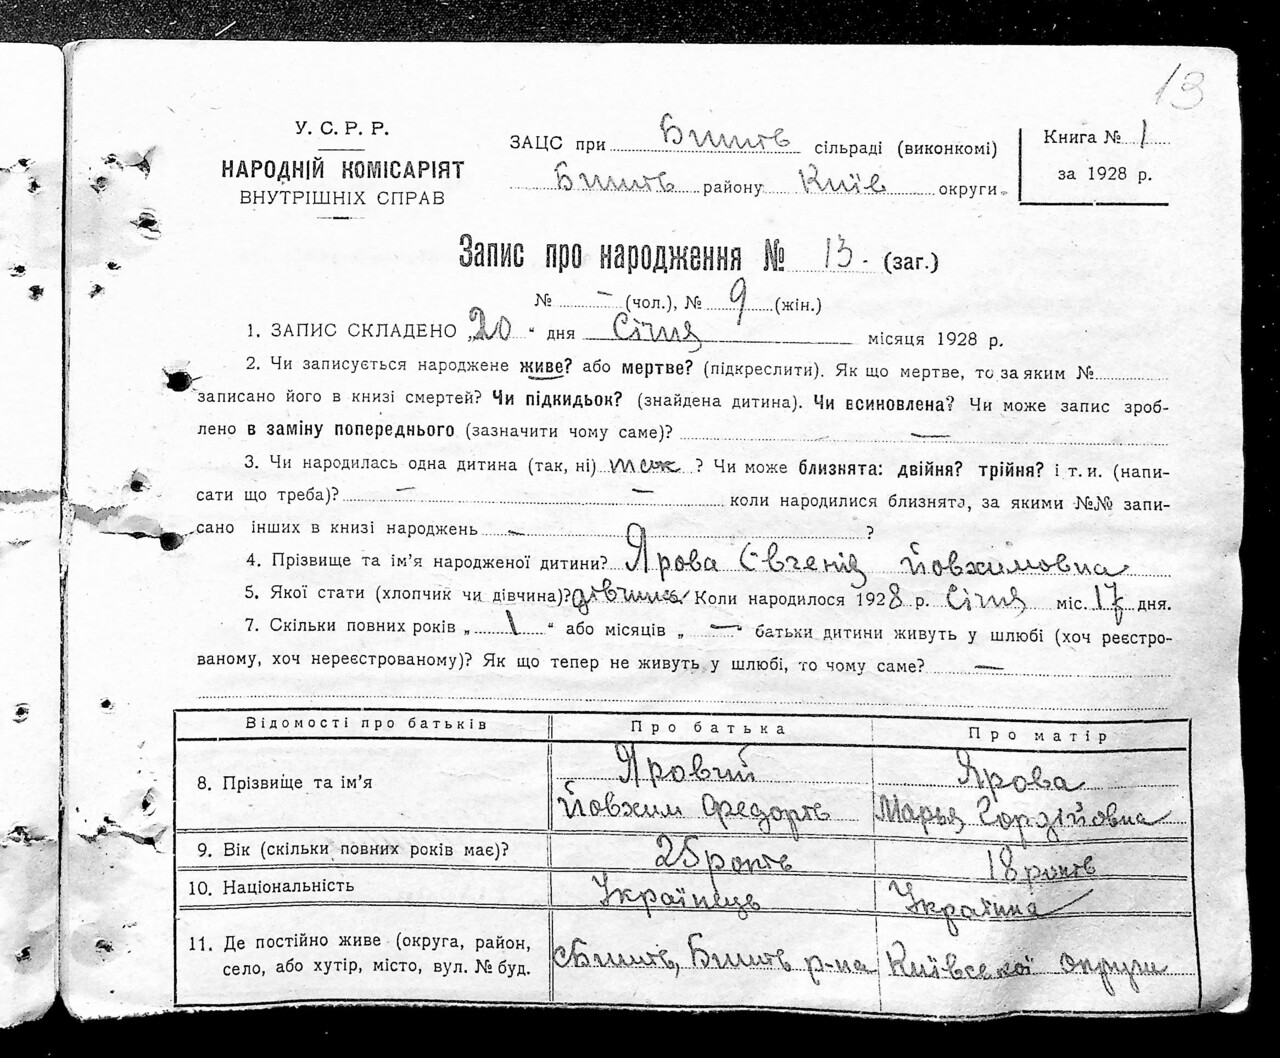 13
У. С. Р. Р.
НАРОДНІЙ КОМІСАРІЯТ
ВНУТРІШНІХ СПРАВ
ЗАЦС при Бишів сільраді (виконкомі)
Бишів району Київ округи
Книга № 1
за 1928 р.
Запис про народження № 13 (заг.)
№ – (чол.), № 9 (жін.)
1. ЗАПИС СКЛАДЕНО „20“ дня Січня місяця 1928 р.
2. Чи записується народжене живе? або мертве? (підкреслити). Як що мертве, то за яким №
записано його в книзі смертей? Чи підкидьок? (знайдена дитина). Чи всиновлена? Чи може запис зроб-
лено в заміну попереднього (зазначити чому саме)? —
3. Чи народилась одна дитина (так, ні) так ? Чи може близнята: двійня? трійня? і т. и. (напи-
сати що треба)? — — коли народилися близнята, за якими №№ запи-
сано інших в книзі народжень — ?
4. Прізвище та ім'я народженої дитини? Ярова Євгенія Йовхимовна
5. Якої стати (хлопчик чи дівчина)? дівчина Коли народилося 1928 р. Січня міс. 17 дня.
7. Скільки повних років „ 1 “ або місяців „ — “ батьки дитини живуть у шлюбі (хоч реєстро-
ваному, хоч нереєстрованому)? Як що тепер не живуть у шлюбі, то чому саме? —
Відомості про батьків Про батька Про матір
8. Прізвище та ім'я Яровий Йовхим Федорів Ярова Марья Гордійовна
9. Вік (скільки повних років має)? 25 років 18 років
10. Національність Українець Україніна
11. Де постійно живе (округа, район, село, або хутір, місто, вул. № буд. с Бишів, Бишів р-на Київської округи